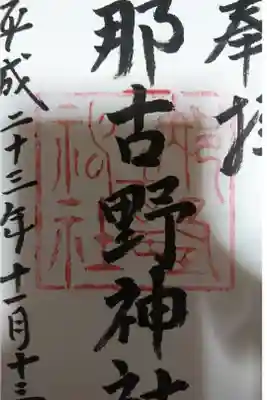 奉拝
那古野神社
平成二十三年十一月十三